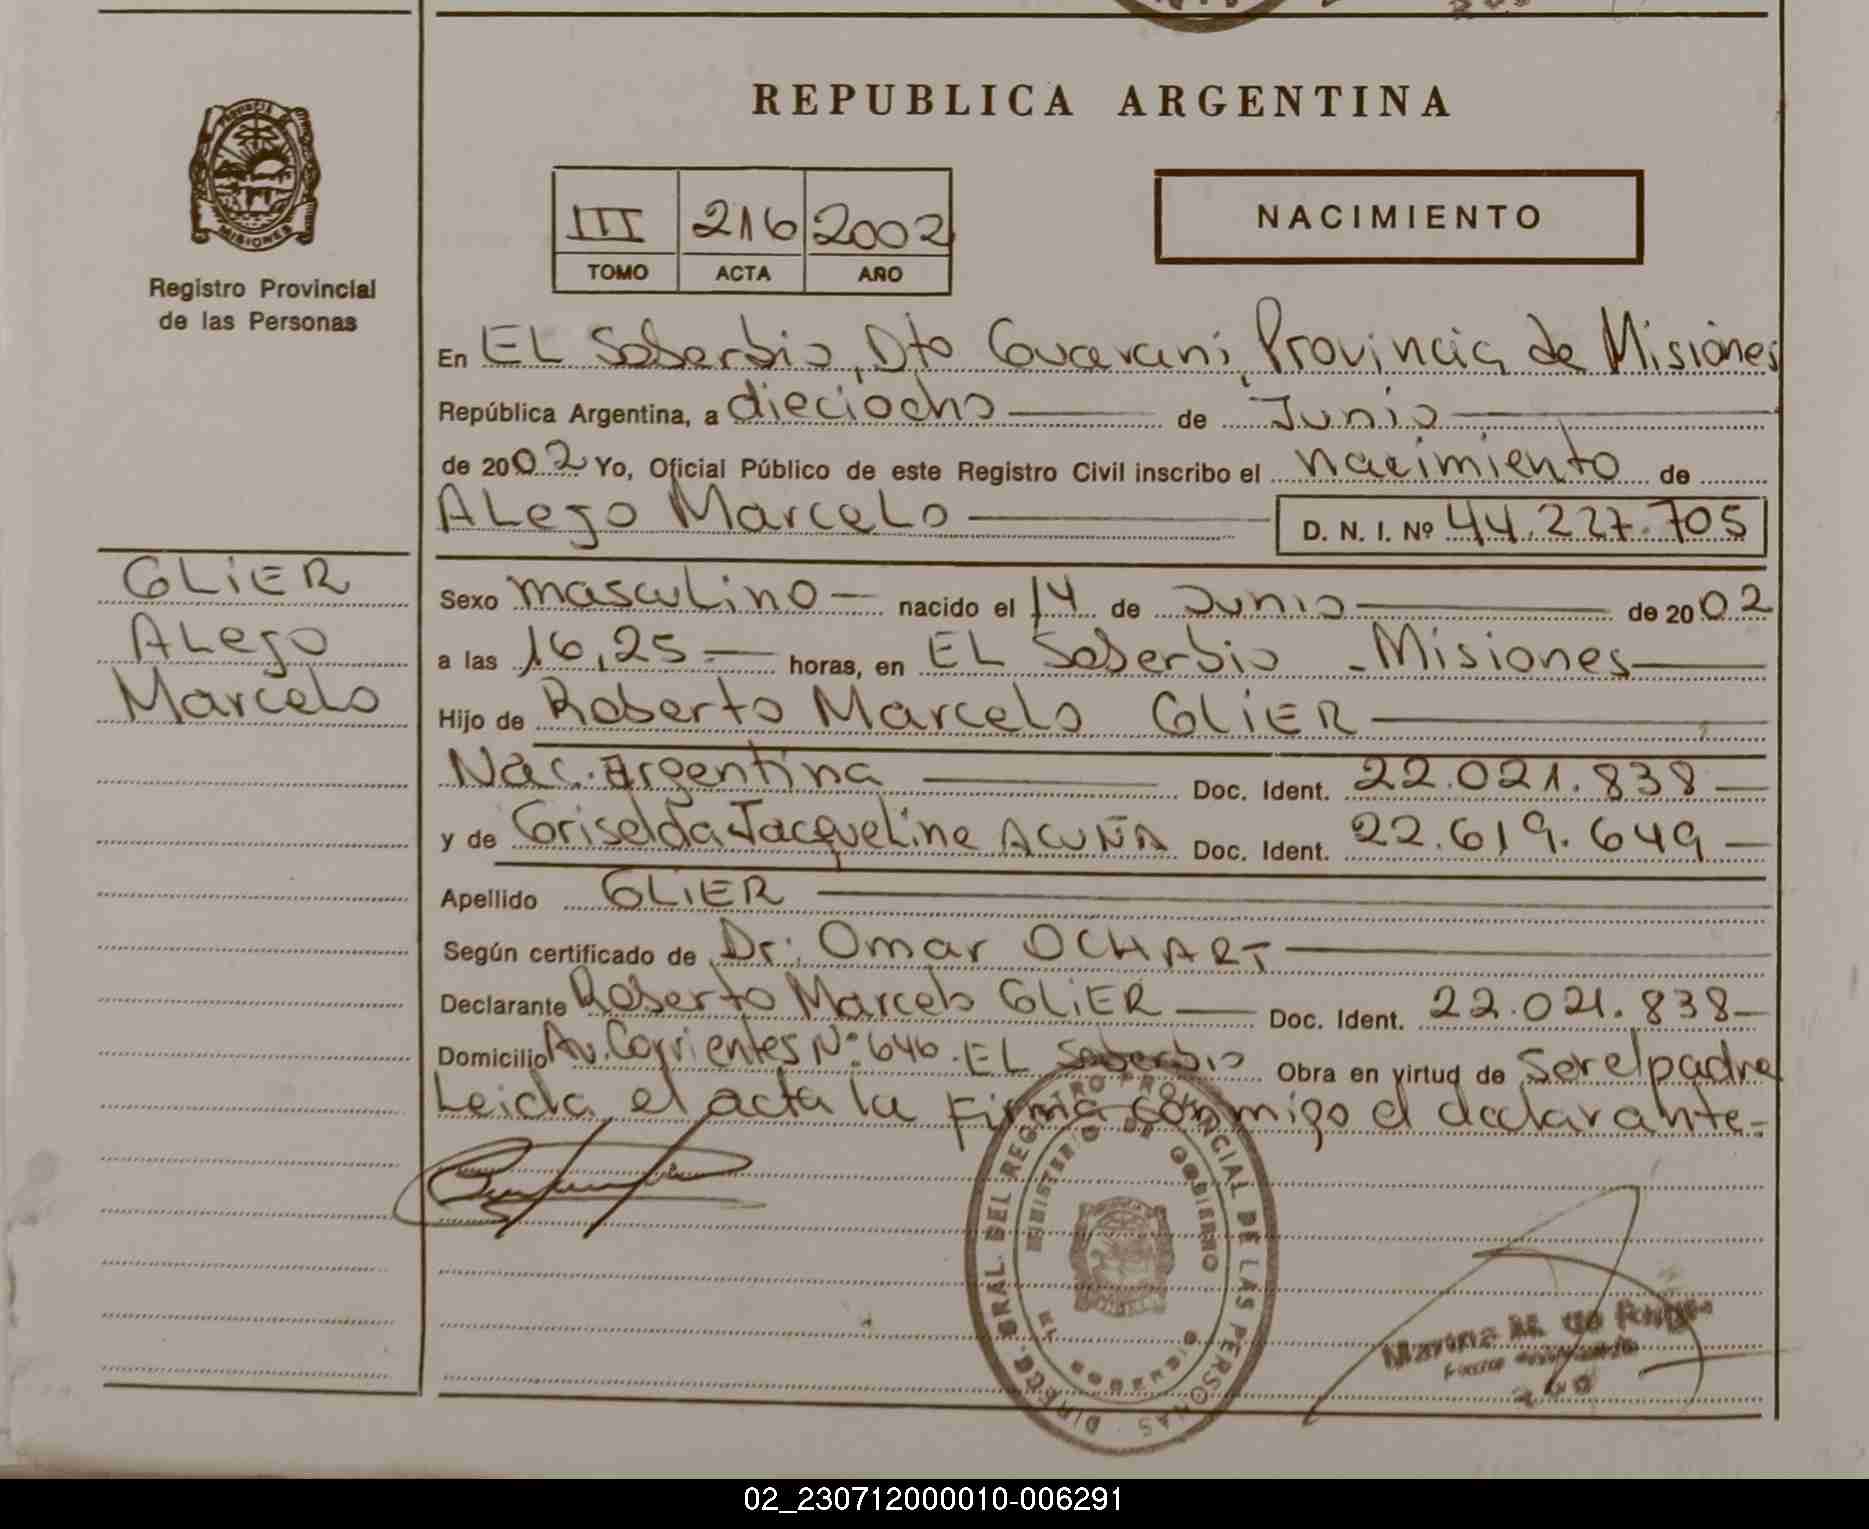 REPUBLICA ARGENTINA
PROVINCIA DE
MISIONES
Registro Provincial
de las Personas
III 216 2002
TOMO ACTA AÑO
NACIMIENTO
En EL Soberbio, Dto Guarani, Provincia de Misiones
República Argentina, a dieciocho de Junio
de 2002 Yo, Oficial Público de este Registro Civil inscribo el nacimiento de
ALejo MarceLo D. N. I. Nº 44.227.705
GLiER
ALejo
Marcelo
Sexo mascuLino nacido el 14 de Junio de 2002
a las 16,25 horas, en EL Soberbio - Misiones
Hijo de Roberto Marcelo GLiER
Nac. Argentina Doc. Ident. 22.021.838
y de Griselda JacqueLine ACUÑA Doc. Ident. 22.619.649
Apellido GLiER
Según certificado de Dr: Omar OCHART
Declarante Roberto Marcelo GLiER Doc. Ident. 22.021.838
Domicilio Av. Corrientes Nº 646. EL Soberbio Obra en virtud de Ser el padre
Leida el acta la Firma conmigo el declarante.
DIREC. GRAL. DEL REGISTRO PROVINCIAL DE LAS PERSONAS
MINISTERIO DE GOBIERNO
EL SOBERBIO
02_230712000010-006291